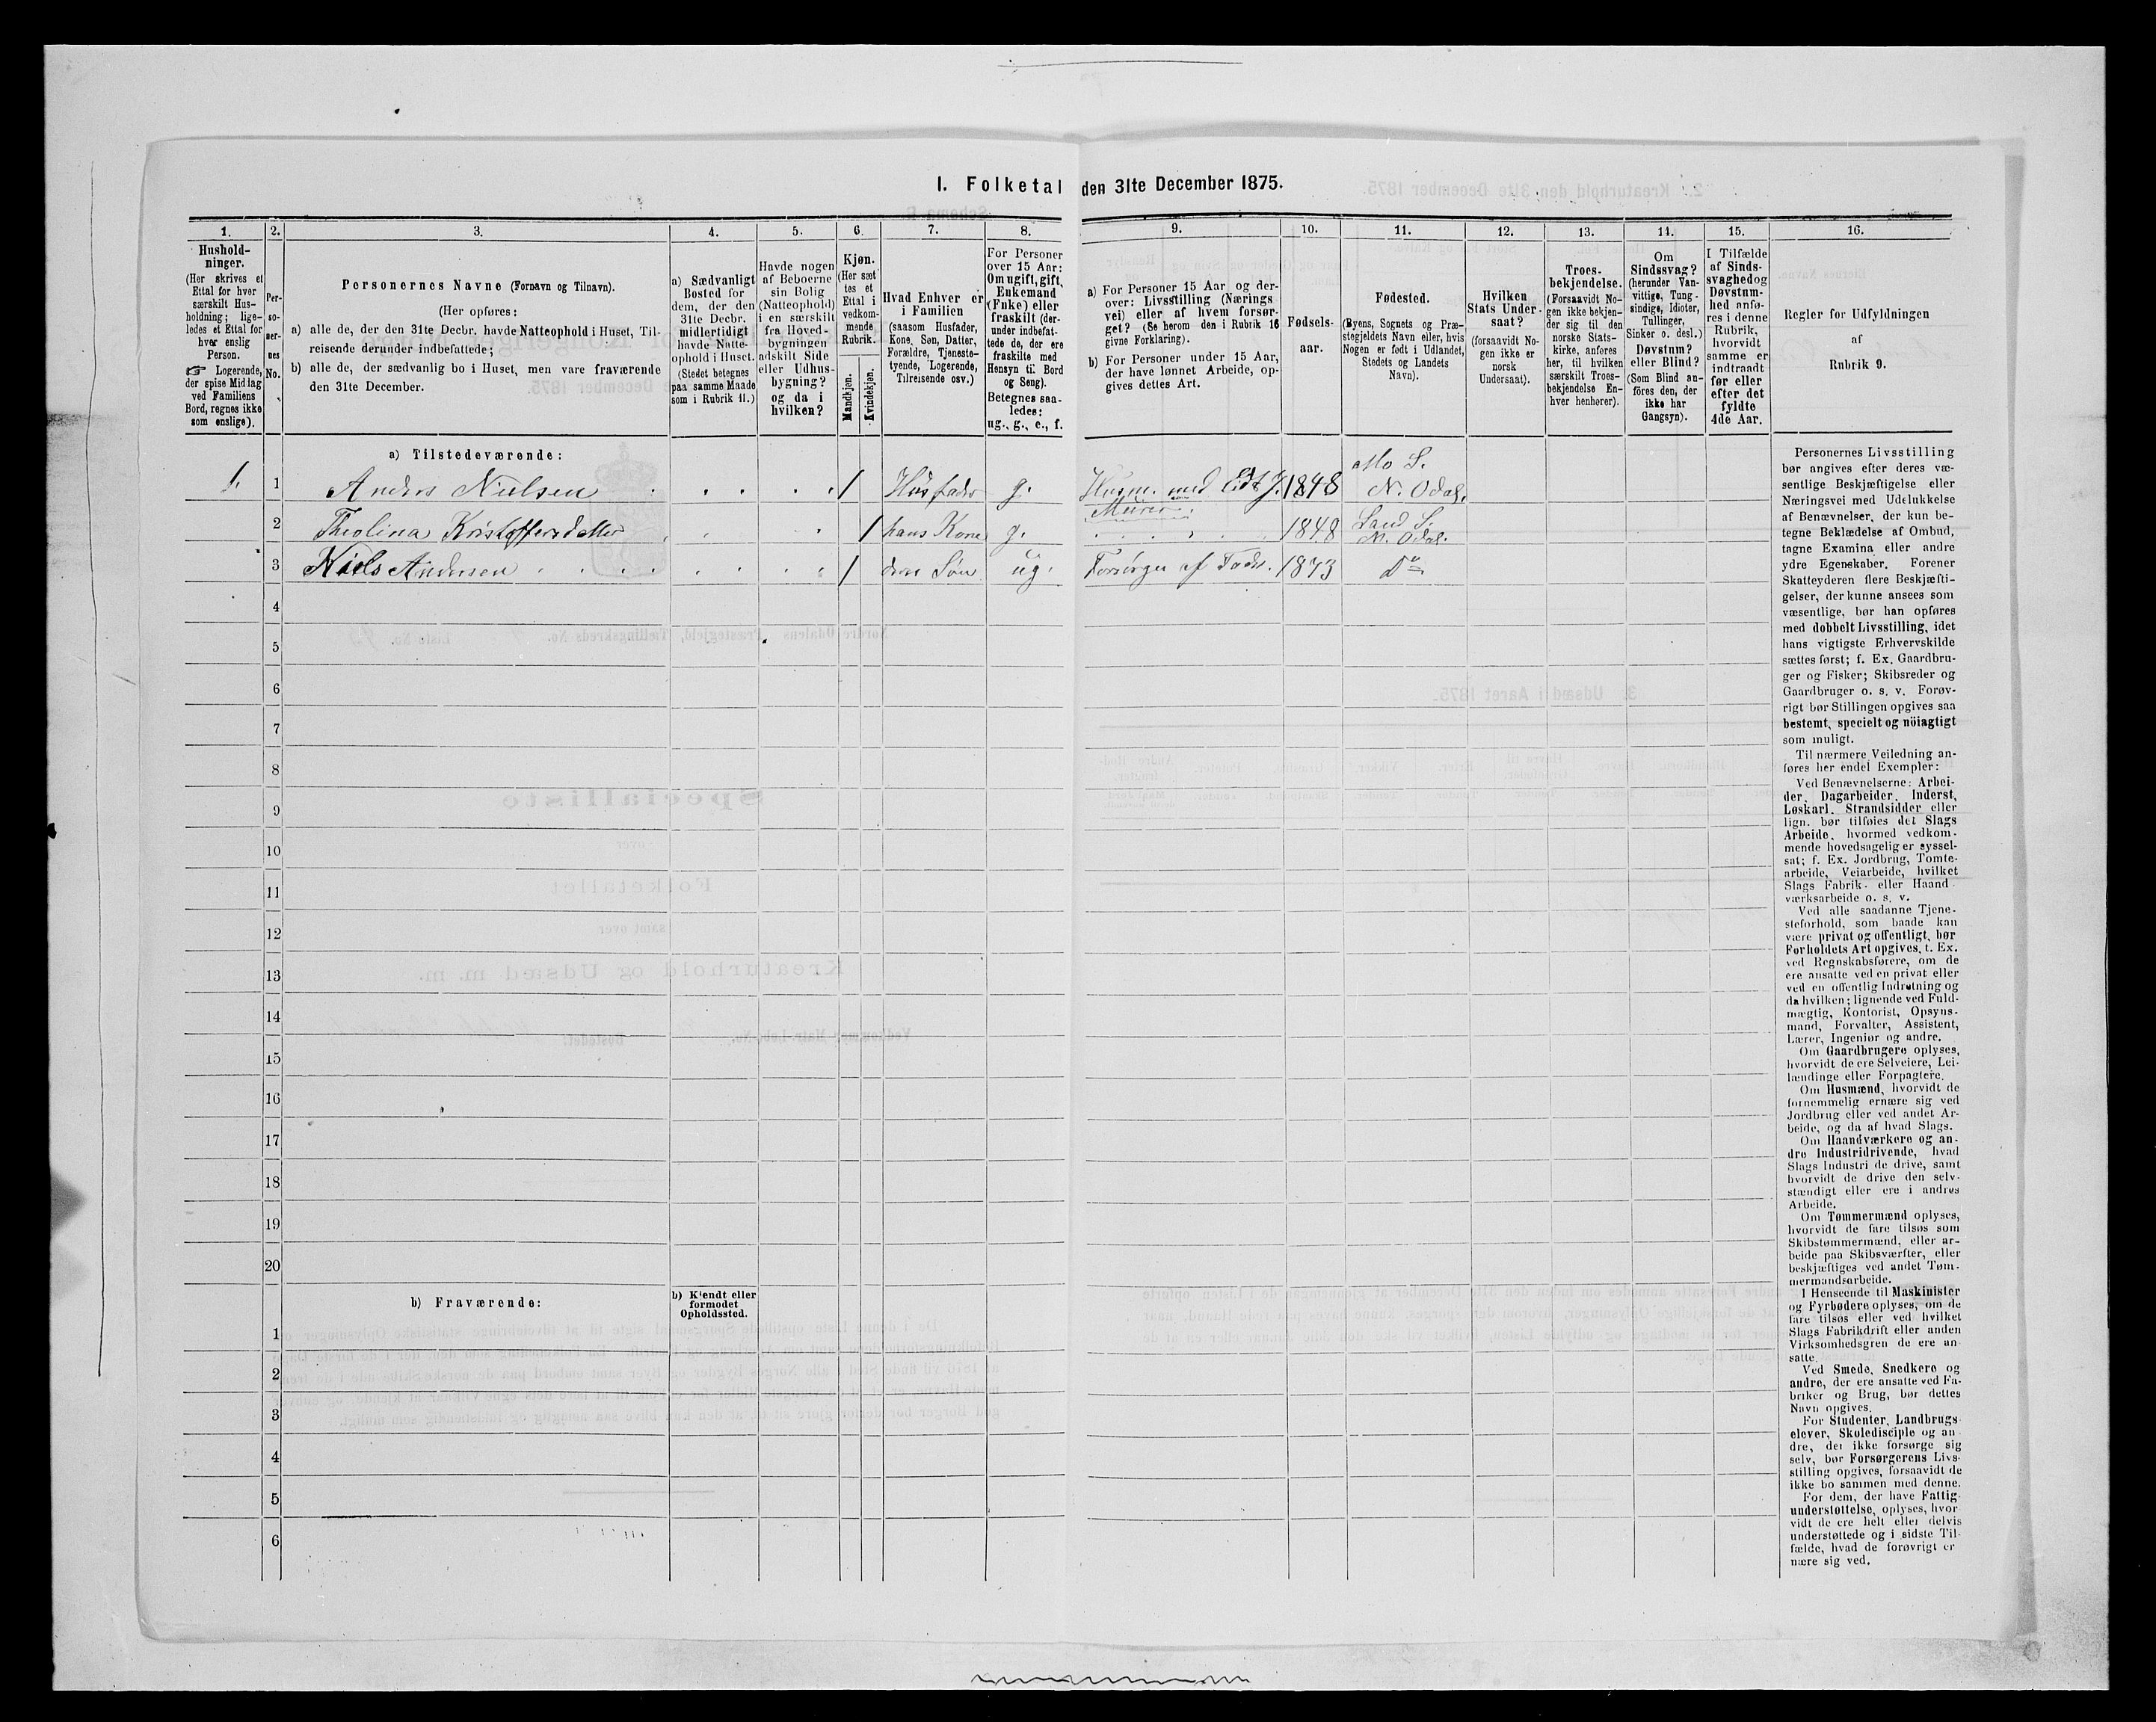 I. Folketal den 31te December 1875.
1.
Hushold-
ninger.
(Her skrives et
Ettal for hver
særskilt Hus-
holdning; lige-
ledes et Ettal for
hver enslig
Person.
☞ Logerende,
der spise Middag
ved Familiens
Bord, regnes ikke
som enslige).
2.
Per-
so-
ner-
nes
No.
3.
Personernes Navne (Fornavn og Tilnavn).
(Her opføres:
a) alle de, der den 31te Decbr. havde Natteophold i Huset, Til-
reisende derunder indbefattede;
b) alle de, der sædvanlig bo i Huset, men vare fraværende
den 31te December.
4.
a) Sædvanligt
Bosted for
dem, der den
31te Decbr.
midlertidigt
havde Natte-
ophold i Huset.
(Stedet betegnes
paa samme Maade
som i Rubrik 11.)
5.
Havde nogen
af Beboerne
sin Bolig
(Natteophold)
i en særskilt
fra Hoved-
bygningen
adskilt Side
eller Udhus-
bygning?
og da i
hvilken?
6.
Kjøn.
(Her sæt-
tes et
Ettal i
vedkom-
mende
Rubrik.
Mandkjøn.
Kvindekjøn.
7.
Hvad Enhver er
i Familien
(saasom Husfader,
Kone, Søn, Datter,
Forældre, Tjeneste-
tyende, Logerende,
Tilreisende osv.)
8.
For Personer
over 15 Aar:
Om ugift, gift,
Enkemand
(Enke) eller
fraskilt (der-
under indbefat-
tede de, der ere
fraskilte med
Hensyn til Bord
og Seng).
Betegnes saa-
ledes:
ug., g., e., f.
9.
a) For Personer 15 Aar og der-
over: Livsstilling (Nærings
vei) eller af hvem forsør-
get? (Se herom den i Rubrik 16
givne Forklaring).
b) For Personer under 15 Aar,
der have lønnet Arbeide, op-
gives dettes Art.
10.
Fødsels-
aar.
11.
Fødested.
(Byens, Sognets og Præ-
stegjeldets Navn eller, hvis
Nogen er født i Udlandet,
Stedets og Landets
Navn).
12.
Hvilken
Stats Under-
saat?
(forsaavidt No-
gen ikke er
norsk
Undersaat).
13.
Troes-
bekjendelse.
(Forsaavidt No-
gen ikke bekjen-
der sig til den
norske Stats-
kirke, anføres
her, til hvilken
særskilt Troes-
bekjendelse En-
hver henhører).
14.
Om
Sindssvag?
(herunder Van-
vittige, Tung-
sindige, Idioter,
Tullinger,
Sinker o. desl.)
Døvstum?
eller Blind?
(Som Blind an-
føres den, der
ikke har
Gangsyn).
15.
I Tilfælde
af Sinds-
svaghed og
Døvstum-
hed anfø-
res i denne
Rubrik,
hvorvidt
samme er
indtraadt
før eller
efter det
fyldte
4de Aar.
16.
Regler for Udfyldningen
af
Rubrik 9.
a) Tilstedeværende:
1. 1 Anders Nielsen 1 Husfader g. Husm. med Murer. 1848 Mo S. N. Odal.
2 Theolina Kristoffersdatter 1 hans Kone g. 1848 Sand S. N. Odal.
3 Niels Andersen 1 deres Søn ug. Forsørges af Fader. 1873 Do
4
5
6
7
8
9
10
11
12
13
14
15
16
17
18
19
20
b) Fraværende:
b) Kjendt eller
formodet
Opholdssted.
1
2
3
4
5
6
Personernes Livsstilling
bør angives efter deres væ-
sentlige Beskjæftigelse eller
Næringsvei med Udelukkelse
af Benævnelser, der kun be-
tegne Beklædelse af Ombud,
tagne Examina eller andre
ydre Egenskaber. Forener
Skatteyderen flere Beskjæfti-
gelser, der kunne ansees som
væsentlige, bør han opføres
med dobbelt Livsstilling, idet
hans vigtigste Erhvervskilde
sættes først; f. Ex. Gaardbru-
ger og Fisker; Skibsreder og
Gaardbruger o. s. v. Forøv-
rigt bør Stillingen opgives saa
bestemt, specielt og nöiagtigt
som muligt.
Til nærmere Veiledning an-
føres her endel Exempler:
Ved Benævnelserne: Arbei-
der, Dagarbeider, Inderst,
Løskarl, Strandsidder eller
lign. bør tilføies det Slags
Arbeide, hvormed vedkom-
mende hovedsagelig er syssel-
sat; f. Ex. Jordbrug, Tomte-
arbeide, Veiarbeide, hvilket
Slags Fabrik- eller Haand-
værksarbeide o. s. v.
Ved alle saadanne Tjene-
steforhold, som baade kan
være privat og offentligt, bør
Forholdets Art opgives, t. Ex.
ved Regnskabsførere, om de
ere ansatte ved en privat eller
ved en offentlig Indretning og
da hvilken; lignende ved Fuld-
mægtig, Kontorist, Opsyns-
mand, Forvalter, Assistent,
Lærer, Ingeniør og andre.
Om Gaardbrugere oplyses,
hvorvidt de ere Selveiere, Lei-
lændinge eller Forpagtere.
Om Husmænd, hvorvidt de
fornemmelig ernære sig ved
Jordbrug eller ved andet Ar-
beide, og da af hvad Slags.
Om Haandværkere og an-
dre Industridrivende, hvad
Slags Industri de drive, samt
hvorvidt de drive den selv-
stændigt eller ere i andres
Arbeide.
Om Tømmermænd oplyses,
hvorvidt de fare tilsøs som
Skibstømmermænd, eller ar-
beide paa Skibsværfter, eller
beskjæftiges ved andet Tøm-
mermandsarbeide.
I Henseende til Maskinister
og Fyrbødere oplyses, om de
fare tilsøs eller ved hvilket
Slags Fabrikdrift eller anden
Virksomhedsgren de ere an-
satte.
Ved Smede, Snedkere og
andre, der ere ansatte ved Fa-
briker og Brug, bør dettes
Navn opgives.
For Studenter, Landbrugs-
elever, Skoledisciple og an-
dre, der ikke forsørge sig
selv, bør Forsørgerens Livs-
stilling opgives, forsaavidt de
ikke bo sammen med denne.
For dem, der have Fattig-
understøttelse, oplyses, hvor-
vidt de ere helt eller delvis
understøttede og i sidste Til-
fælde, hvad de forøvrigt er-
nære sig ved.